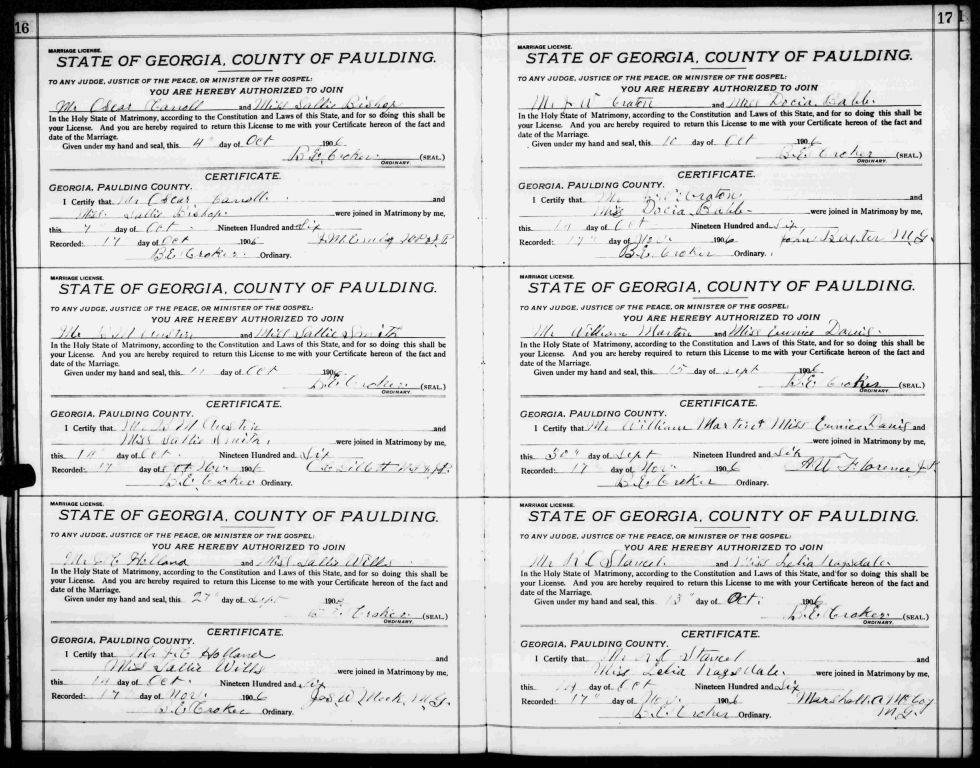 16
MARRIAGE LICENSE.
STATE OF GEORGIA, COUNTY OF PAULDING.
TO ANY JUDGE, JUSTICE OF THE PEACE, OR MINISTER OF THE GOSPEL:
YOU ARE HEREBY AUTHORIZED TO JOIN
Mr Oscar Carroll and Miss Sallie Bishop
In the Holy State of Matrimony, according to the Constitution and Laws of this State, and for so doing this shall be
your License. And you are hereby required to return this License to me with your Certificate hereon of the fact and
date of the Marriage.
Given under my hand and seal, this 4" day of Oct 1906
B.E. Croker (SEAL.)
ORDINARY.
CERTIFICATE.
GEORGIA, PAULDING COUNTY.
I Certify that Mr Oscar Carroll and
Miss Sallie Bishop were joined in Matrimony by me,
this 7" day of Oct. Nineteen Hundred and Six
Recorded: 17 day of Oct 1906 J.M.
B.E. Croker Ordinary.
MARRIAGE LICENSE.
STATE OF GEORGIA, COUNTY OF PAULDING.
TO ANY JUDGE, JUSTICE OF THE PEACE, OR MINISTER OF THE GOSPEL:
YOU ARE HEREBY AUTHORIZED TO JOIN
Mr M Austin and Miss Sallie Smith
In the Holy State of Matrimony, according to the Constitution and Laws of this State, and for so doing this shall be
your License. And you are hereby required to return this License to me with your Certificate hereon of the fact and
date of the Marriage.
Given under my hand and seal, this 11 day of Oct 1906
B.E. Croker (SEAL.)
ORDINARY.
CERTIFICATE.
GEORGIA, PAULDING COUNTY.
I Certify that Mr M Austin and
Miss Sallie Smith were joined in Matrimony by me,
this 14" day of Oct. Nineteen Hundred and Six
Recorded: 17 day of Nov. 1906
B.E. Croker Ordinary.
MARRIAGE LICENSE.
STATE OF GEORGIA, COUNTY OF PAULDING.
TO ANY JUDGE, JUSTICE OF THE PEACE, OR MINISTER OF THE GOSPEL:
YOU ARE HEREBY AUTHORIZED TO JOIN
Mr Holland and Miss Sallie Wills
In the Holy State of Matrimony, according to the Constitution and Laws of this State, and for so doing this shall be
your License. And you are hereby required to return this License to me with your Certificate hereon of the fact and
date of the Marriage.
Given under my hand and seal, this 27" day of Sept 190
B.E. Croker (SEAL.)
ORDINARY.
CERTIFICATE.
GEORGIA, PAULDING COUNTY.
I Certify that Mr Holland and
Miss Sallie Wills were joined in Matrimony by me,
this 14 day of Oct. Nineteen Hundred and Six
Recorded: 17" day of Nov. 1906 Jas W. Meek M.G.
B.E. Croker Ordinary.
17
MARRIAGE LICENSE.
STATE OF GEORGIA, COUNTY OF PAULDING.
TO ANY JUDGE, JUSTICE OF THE PEACE, OR MINISTER OF THE GOSPEL:
YOU ARE HEREBY AUTHORIZED TO JOIN
Mr J W Craton and Miss Docia Babb
In the Holy State of Matrimony, according to the Constitution and Laws of this State, and for so doing this shall be
your License. And you are hereby required to return this License to me with your Certificate hereon of the fact and
date of the Marriage.
Given under my hand and seal, this 10 day of Oct 1906
B.E. Croker (SEAL.)
ORDINARY.
CERTIFICATE.
GEORGIA, PAULDING COUNTY.
I Certify that Mr Craton and
Miss Docia Babb were joined in Matrimony by me,
this 14 day of Oct Nineteen Hundred and Six
Recorded: 17" day of Nov. 1906 John Baxter M.G.
B.E. Croker Ordinary.
MARRIAGE LICENSE.
STATE OF GEORGIA, COUNTY OF PAULDING.
TO ANY JUDGE, JUSTICE OF THE PEACE, OR MINISTER OF THE GOSPEL:
YOU ARE HEREBY AUTHORIZED TO JOIN
Mr William Martin and Miss Eunice Davis
In the Holy State of Matrimony, according to the Constitution and Laws of this State, and for so doing this shall be
your License. And you are hereby required to return this License to me with your Certificate hereon of the fact and
date of the Marriage.
Given under my hand and seal, this 15 day of Sept 1906
B.E. Croker (SEAL.)
ORDINARY.
CERTIFICATE.
GEORGIA, PAULDING COUNTY.
I Certify that Mr William Martin & Miss Eunice Davis and
were joined in Matrimony by me,
this 30" day of Sept Nineteen Hundred and Six
Recorded: 17 day of Nov. 1906 A.W. Florence J.P.
B.E. Croker Ordinary.
MARRIAGE LICENSE.
STATE OF GEORGIA, COUNTY OF PAULDING.
TO ANY JUDGE, JUSTICE OF THE PEACE, OR MINISTER OF THE GOSPEL:
YOU ARE HEREBY AUTHORIZED TO JOIN
Mr N C Starcel and Miss Lelia Ragsdale
In the Holy State of Matrimony, according to the Constitution and Laws of this State, and for so doing this shall be
your License. And you are hereby required to return this License to me with your Certificate hereon of the fact and
date of the Marriage.
Given under my hand and seal, this 13" day of Oct. 1906
B.E. Croker (SEAL.)
ORDINARY.
CERTIFICATE.
GEORGIA, PAULDING COUNTY.
I Certify that Mr N C Starcel and
Miss Lelia Ragsdale were joined in Matrimony by me,
this 14 day of Oct Nineteen Hundred and Six
Recorded: 17" day of Nov. 1906 Marshall A McCoy
B.E. Croker Ordinary. M.G.